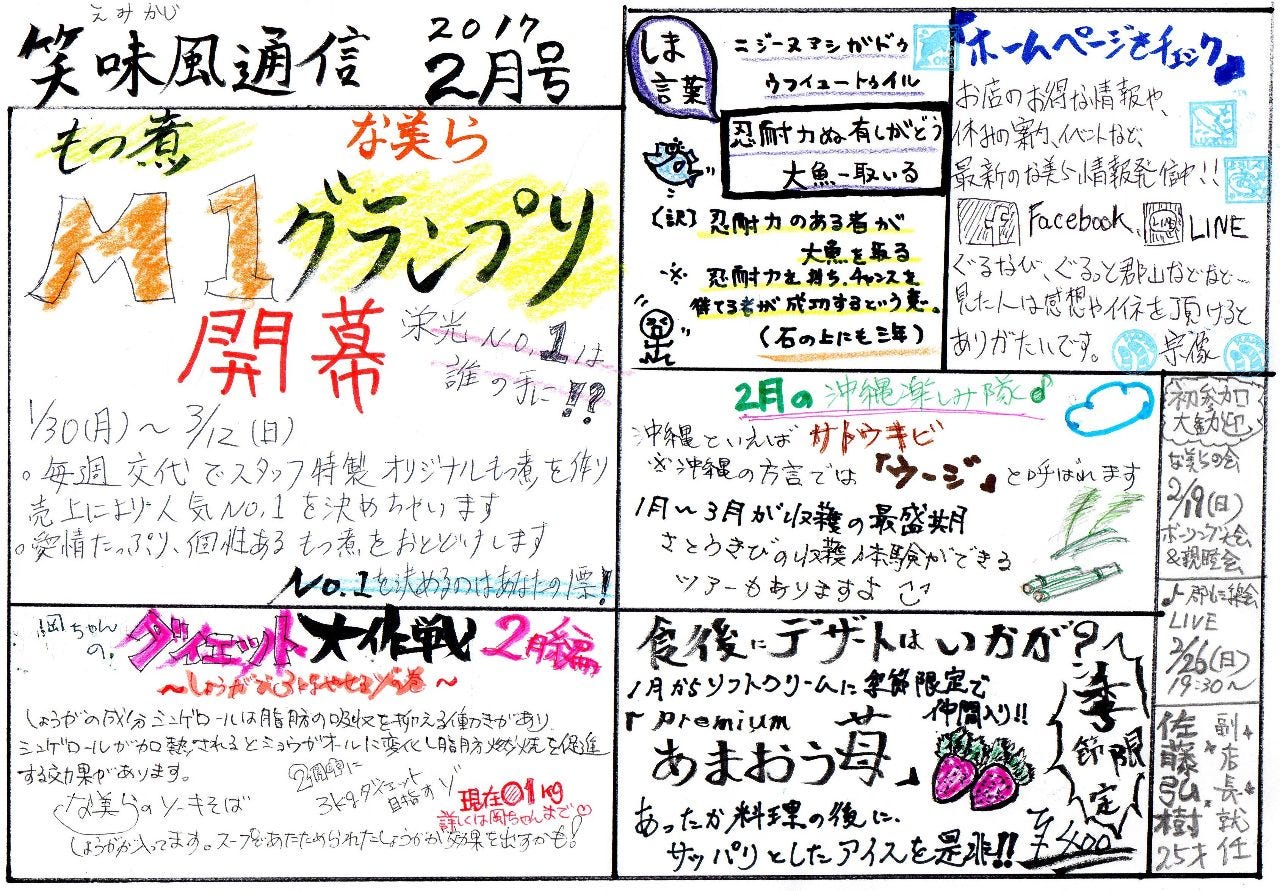 えみかじ
笑味風通信
2017
2月号
もつ煮 な美ら
M1グランプリ
開幕
栄光No.1は
誰の手に!?
1/30(月)~3/12(日)
。毎週交代でスタッフ特製オリジナルもつ煮を作り
売上により人気No.1を決めちゃいます
。愛情たっぷり、個性あるもつ煮をおとどけします
No.1を決めるのはあなたの1票!
岡ちゃん
の
ダイエット大作戦 2月編
~しょうががぶりはやせる!の巻~
しょうがの成分ジンゲロールは脂肪の吸収を抑える働きがあり
ジンゲロールが加熱されるとショウガオールに変化し脂肪燃焼を促進
する効果があります。
な美らのソーキそば
しょうが入ってます。スープであたためられたしょうがが効果を出すかも!
2週間に
3kgダイエット
目指すゾ
現在 1kg
詳しくは岡ちゃんまで♡
しま
言葉
ニジーヌアシガドゥ
ウフイユートゥイル
忍耐力ぬ有しがどう
大魚-取いる
(訳)忍耐力のある者が
大魚を取る
※忍耐力を持ち、チャンスを
待てる者が成功するという意。
(石の上にも三年)
『ホームページをチェック』
お店のお得な情報や、
休みの案内、イベントなど、
最新のな美ら情報発信中!!
Facebook、LINE
ぐるなび、ぐるっと郡山などなど~
見た人は感想やイイネを頂けると
ありがたいです。 宗像
2月の沖縄楽しみ隊♪
沖縄といえば サトウキビ
※沖縄の方言では「ウージ」と呼ばれます
1月~3月が収穫の最盛期
さとうきびの収穫体験ができる
ツアーもありますよ
食後にデザートはいかが?~
1月からソフトクリームに季節限定で
「Premium 仲間入り!!
あまおう苺」
あったか料理の後に、
サッパリとしたアイスを是非!!
季節限定
¥400
初参加
大歓迎
な美らの会
2/19(日)
ボーリング大会
&親睦会
♪郡山
LIVE
2/26(日)
19:30~
副店長就任
佐藤弘樹
25才